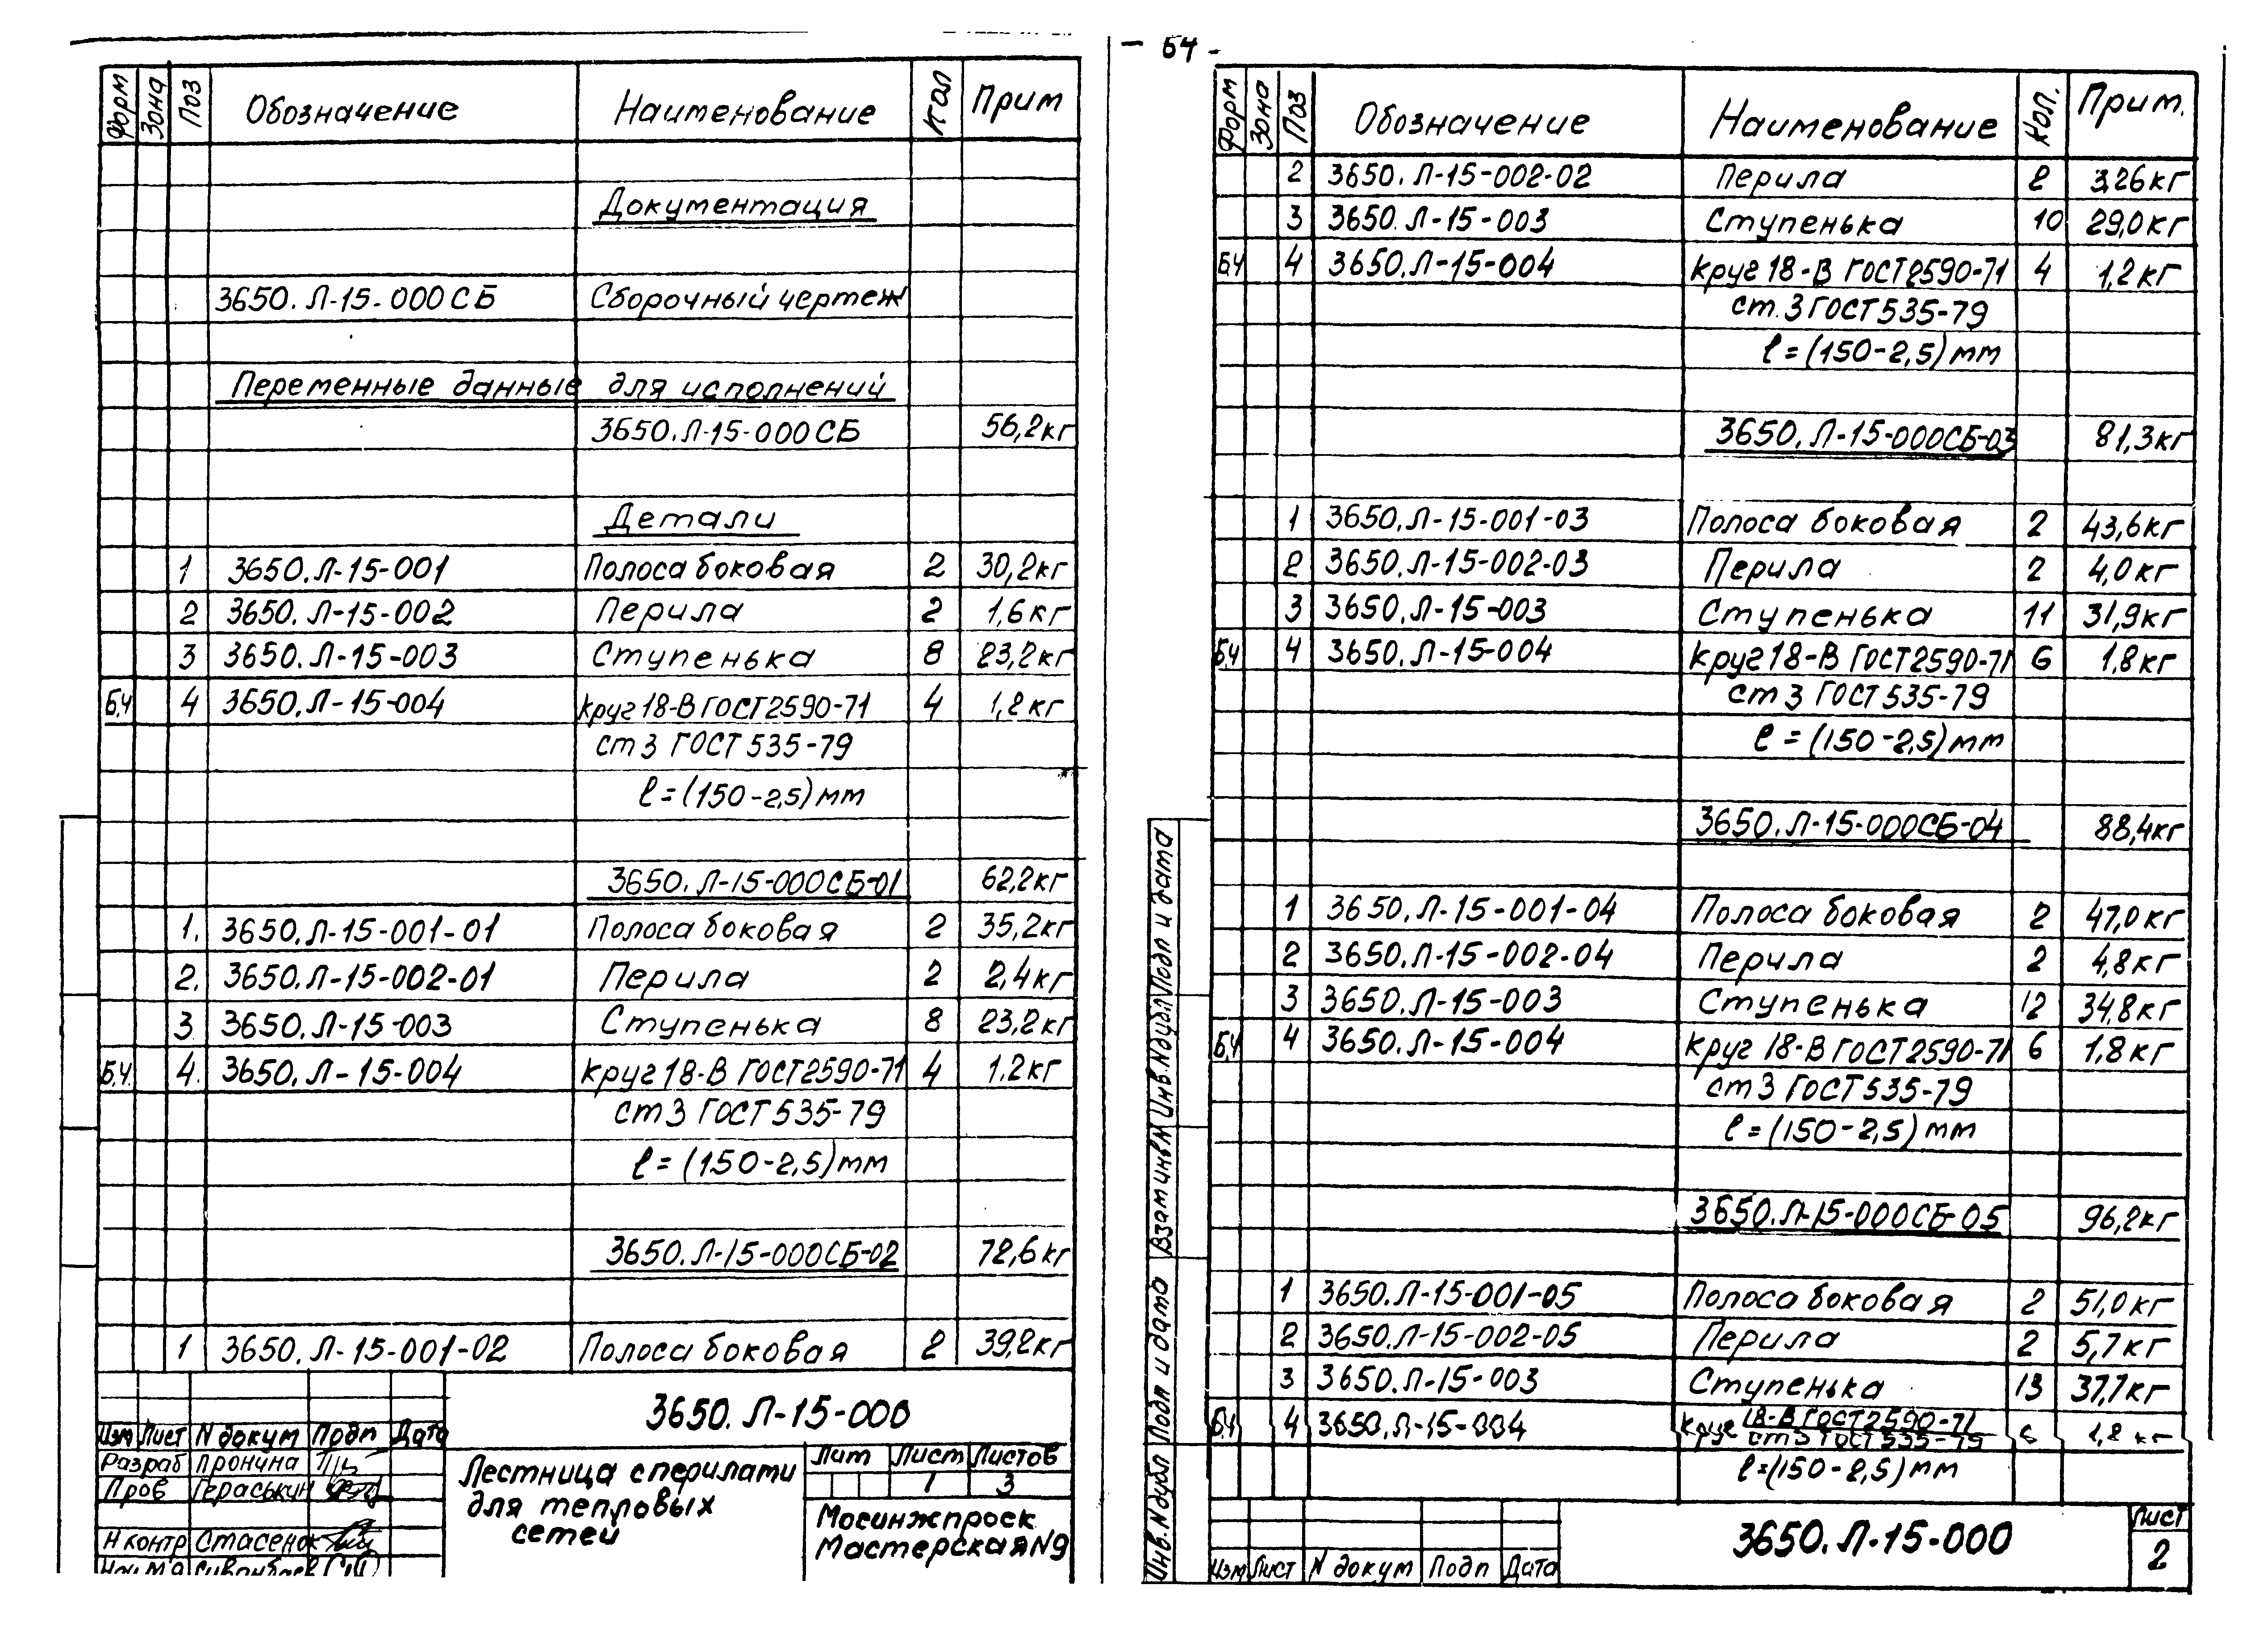 - 54 -
Форм Зона Поз Обозначение Наименование Кол Прим
Документация
3650.Л-15-000СБ Сборочный чертеж
Переменные данные для исполнений
3650.Л-15-000СБ 56,2кг
Детали
1 3650.Л-15-001 Полоса боковая 2 30,2кг
2 3650.Л-15-002 Перила 2 1,6кг
3 3650.Л-15-003 Ступенька 8 23,2кг
Б.Ч 4 3650.Л-15-004 круг 18-В ГОСТ2590-71 4 1,2кг
ст3 ГОСТ 535-79
ℓ=(150-2,5)мм
3650.Л-15-000СБ-01 62,2кг
1. 3650.Л-15-001-01 Полоса боковая 2 35,2кг
2. 3650.Л-15-002-01 Перила 2 2,4кг
3 3650.Л-15-003 Ступенька 8 23,2кг
Б.Ч. 4. 3650.Л-15-004 круг 18-В ГОСТ2590-71 4 1.2кг
ст3 ГОСТ 535-79
ℓ=(150-2,5)мм
3650.Л-15-000СБ-02 72,6кг
1 3650.Л-15-001-02 Полоса боковая 2 39,2кг
3650.Л-15-000
Изм Лист N докум Подп Дата
Разраб Пронина
Пров Гераськин
Н контр Стасенок
Лестница с перилами
для тепловых
сетей
Лит Лист Листов
1 3
Мосинжпроек
Мастерская N9
Форм Зона Поз Обозначение Наименование Кол. Прим.
2 3650.Л-15-002-02 Перила 2 3,26кг
3 3650.Л-15-003 Ступенька 10 29,0кг
Б.Ч 4 3650.Л-15-004 круг 18-В ГОСТ2590-71 4 1,2кг
ст.3 ГОСТ 535-79
ℓ=(150-2,5)мм
3650.Л-15-000СБ-03 81,3кг
1 3650.Л-15-001-03 Полоса боковая 2 43,6кг
2 3650.Л-15-002-03 Перила 2 4,0кг
3 3650.Л-15-003 Ступенька 11 31,9кг
Б.Ч 4 3650.Л-15-004 круг 18-В ГОСТ2590-71 6 1,8кг
ст3 ГОСТ 535-79
ℓ=(150-2,5)мм
3650.Л-15-000СБ-04 88,4кг
1 3650.Л-15-001-04 Полоса боковая 2 47,0кг
2 3650.Л-15-002-04 Перила 2 4,8кг
3 3650.Л-15-003 Ступенька 12 34,8кг
Б.Ч 4 3650.Л-15-004 круг 18-В ГОСТ2590-71 6 1,8кг
ст3 ГОСТ 535-79
ℓ=(150-2,5)мм
3650.Л-15-000СБ-05 96,2кг
1 3650.Л-15-001-05 Полоса боковая 2 51,0кг
2 3650.Л-15-002-05 Перила 2 5,7кг
3 3650.Л-15-003 Ступенька 13 37,7кг
Б.Ч 4 3650.Л-15-004 круг 18-В ГОСТ2590-71 6 1,8 кг
ст3 ГОСТ 535-79
ℓ=(150-2,5)мм
Инв.Nдубл Подп и дата Взам инв N Инв.Nдубл Подп и дата
Изм Лист N докум Подп Дата
3650.Л-15-000
Лист
2